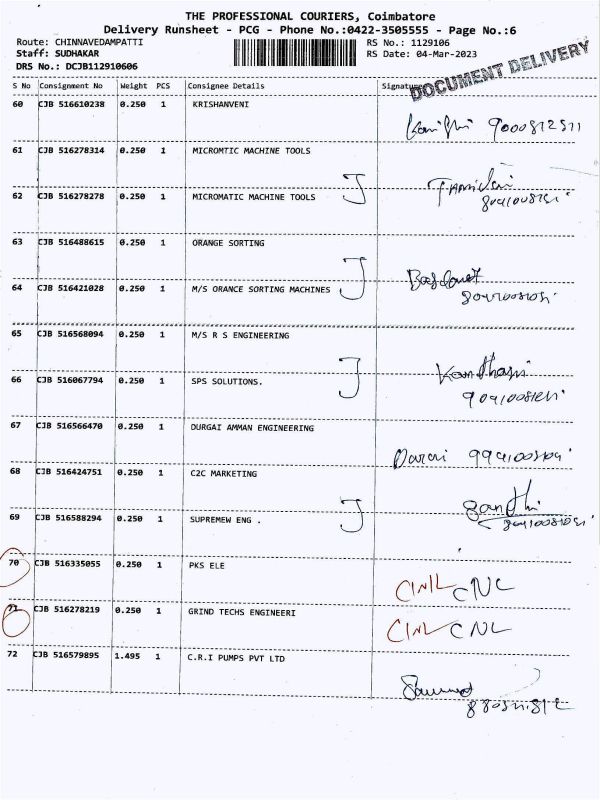 THE PROFESSIONAL COURIERS, Coimbatore
Delivery Runsheet - PCG - Phone No.:0422-3505555 - Page No.:6
Route: CHINNAVEDAMPATTI RS No.: 1129106
Staff: SUDHAKAR RS Date: 04-Mar-2023
DRS No.: DCJB112910606
DOCUMENT DELIVERY
S No Consignment No Weight PCS Consignee Details Signature
60 CJB 516610238 0.250 1 KRISHANVENI
61 CJB 516278314 0.250 1 MICROMTIC MACHINE TOOLS
62 CJB 516278278 0.250 1 MICROMATIC MACHINE TOOLS
63 CJB 516488615 0.250 1 ORANGE SORTING
64 CJB 516421028 0.250 1 M/S ORANCE SORTING MACHINES
65 CJB 516568094 0.250 1 M/S R S ENGINEERING
66 CJB 516067794 0.250 1 SPS SOLUTIONS.
67 CJB 516566470 0.250 1 DURGAI AMMAN ENGINEERING
68 CJB 516424751 0.250 1 C2C MARKETING
69 CJB 516588294 0.250 1 SUPREMEW ENG .
70 CJB 516335055 0.250 1 PKS ELE
CNL
71 CJB 516278219 0.250 1 GRIND TECHS ENGINEERI
CNL
72 CJB 516579895 1.495 1 C.R.I PUMPS PVT LTD